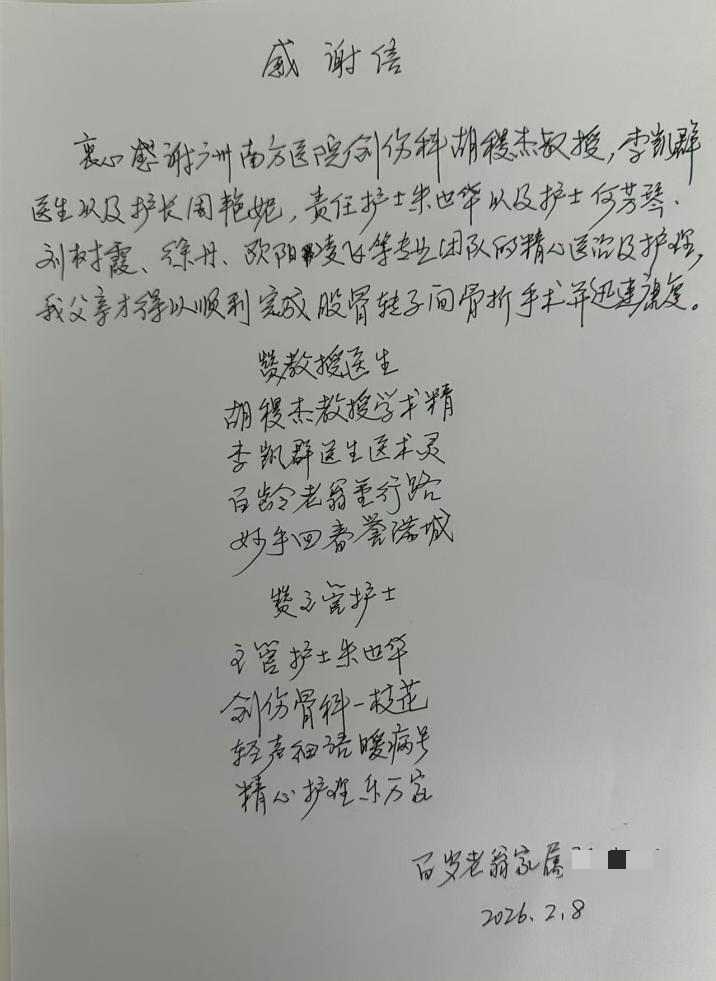 感谢信
衷心感谢广州南方医院创伤科胡稷杰教授，李凯群
医生以及护长周艳妮，责任护士朱世华以及护士何芳琴、
刘树霞、徐丹、欧阳凌飞等专业团队的精心医治及护理，
我父亲才得以顺利完成股骨转子间骨折手术并迅速康复。
赞教授医生
胡稷杰教授学术精
李凯群医生医术灵
百龄老翁重行路
妙手回春誉满城
赞主管护士
主管护士朱世华
创伤骨科一枝花
轻声细语暖病号
精心护理乐万家
百岁老翁家属
2026.2.8